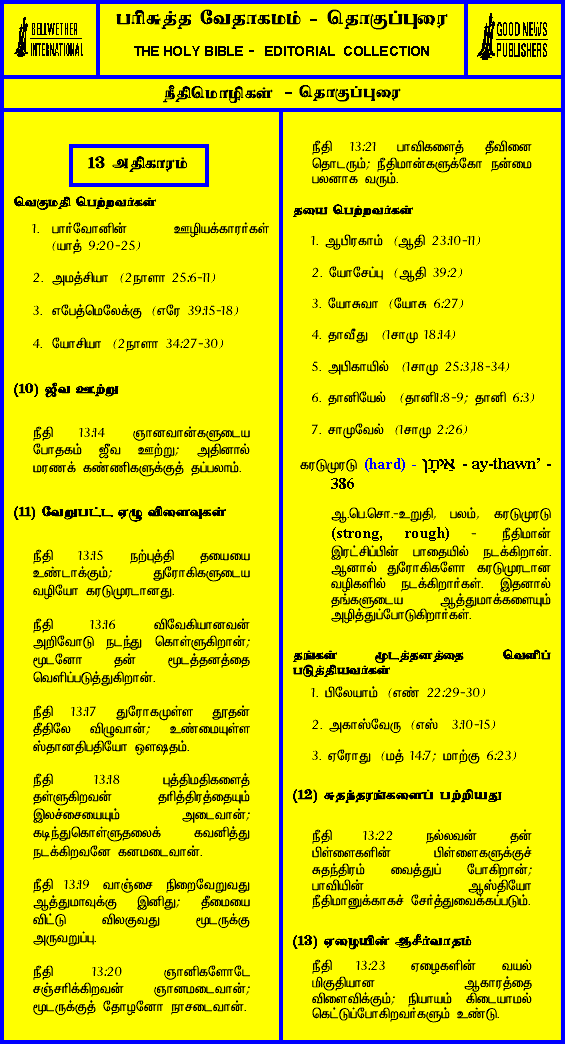 BELLWETHER
INTERNATIONAL
பரிசுத்த வேதாகமம் - தொகுப்புரை
THE HOLY BIBLE - EDITORIAL COLLECTION
GOOD NEWS
PUBLISHERS
நீதிமொழிகள் - தொகுப்புரை
13 அதிகாரம்
வெகுமதி பெற்றவர்கள்
1. பார்வோனின் ஊழியக்காரர்கள்
(யாத் 9:20-25)
2. அமத்சியா (2நாளா 25:6-11)
3. எபேத்மெலேக்கு (எரே 39:15-18)
4. யோசியா (2நாளா 34:27-30)
(10) ஜீவ ஊற்று
நீதி 13:14 ஞானவான்களுடைய
போதகம் ஜீவ ஊற்று; அதினால்
மரணக் கண்ணிகளுக்குத் தப்பலாம்.
(11) வேறுபட்ட ஏழு விளைவுகள்
நீதி 13:15 நற்புத்தி தயையை
உண்டாக்கும்; துரோகிகளுடைய
வழியோ கரடுமுரடானது.
நீதி 13:16 விவேகியானவன்
அறிவோடு நடந்து கொள்ளுகிறான்;
மூடனோ தன் மூடத்தனத்தை
வெளிப்படுத்துகிறான்.
நீதி 13:17 துரோகமுள்ள தூதன்
தீதிலே விழுவான்; உண்மையுள்ள
ஸ்தானதிபதியோ ஔஷதம்.
நீதி 13:18 புத்திமதிகளைத்
தள்ளுகிறவன் தரித்திரத்தையும்
இலச்சையையும் அடைவான்;
கடிந்துகொள்ளுதலைக் கவனித்து
நடக்கிறவனே கனமடைவான்.
நீதி 13:19 வாஞ்சை நிறைவேறுவது
ஆத்துமாவுக்கு இனிது; தீமையை
விட்டு விலகுவது மூடருக்கு
அருவறுப்பு.
நீதி 13:20 ஞானிகளோடே
சஞ்சரிக்கிறவன் ஞானமடைவான்;
மூடருக்குத் தோழனோ நாசடைவான்.
நீதி 13:21 பாவிகளைத் தீவினை
தொடரும்; நீதிமான்களுக்கோ நன்மை
பலனாக வரும்.
தயை பெற்றவர்கள்
1. ஆபிரகாம் (ஆதி 23:10-11)
2. யோசேப்பு (ஆதி 39:2)
3. யோசுவா (யோசு 6:27)
4. தாவீது (1சாமு 18:14)
5. அபிகாயில் (1சாமு 25:3,18-34)
6. தானியேல் (தானி1:8-9; தானி 6:3)
7. சாமுவேல் (1சாமு 2:26)
கரடுமுரடு (hard) - אֵיתָן - ay-thawn' -
386
ஆ.பெ.சொ.-உறுதி, பலம், கரடுமுரடு
(strong, rough) - நீதிமான்
இரட்சிப்பின் பாதையில் நடக்கிறான்.
ஆனால் துரோகிகளோ கரடுமுரடான
வழிகளில் நடக்கிறார்கள். இதனால்
தங்களுடைய ஆத்துமாக்களையும்
அழித்துப்போடுகிறார்கள்.
தங்கள் மூடத்தனத்தை வெளிப்
படுத்தியவர்கள்
1. பிலேயாம் (எண் 22:29-30)
2. அகாஸ்வேரு (எஸ் 3:10-15)
3. ஏரோது (மத் 14:7; மாற்கு 6:23)
(12) சுதந்தரங்களைப் பற்றியது
நீதி 13:22 நல்லவன் தன்
பிள்ளைகளின் பிள்ளைகளுக்குச்
சுதந்திரம் வைத்துப் போகிறான்;
பாவியின் ஆஸ்தியோ
நீதிமானுக்காகச் சேர்த்துவைக்கப்படும்.
(13) ஏழையின் ஆசீர்வாதம்
நீதி 13:23 ஏழைகளின் வயல்
மிகுதியான ஆகாரத்தை
விளைவிக்கும்; நியாயம் கிடையாமல்
கெட்டுப்போகிறவர்களும் உண்டு.